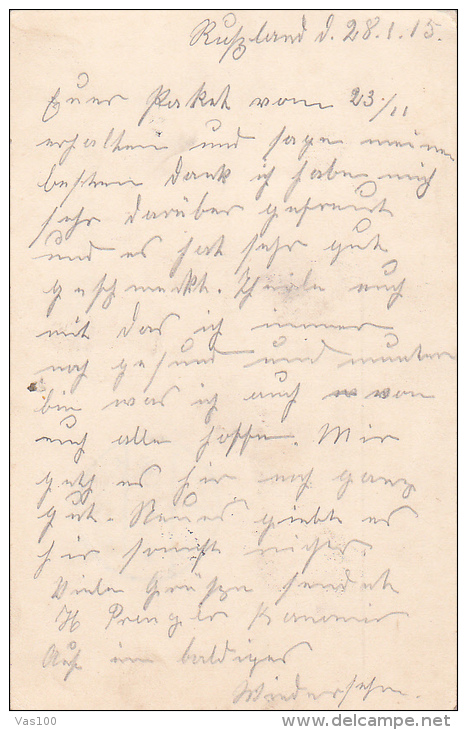 Rußland d. 28.1.15.
Euer Paket vom 23/11
erhalten und sage meinen
besten Dank ich habe mich
sehr darüber gefreut
und es hat sehr gut
geschmeckt. Theile euch
mit das ich immer
noch gesund und munter
bin was ich auch von
euch alle hoffe. Mir
geth es hir noch ganz
gut. Neues giebt es
hir sonst nichts
Viele Grüsze sendet
H Prengler Kanonir
Auf ein baldiges
Wiedersehn.
Vas100